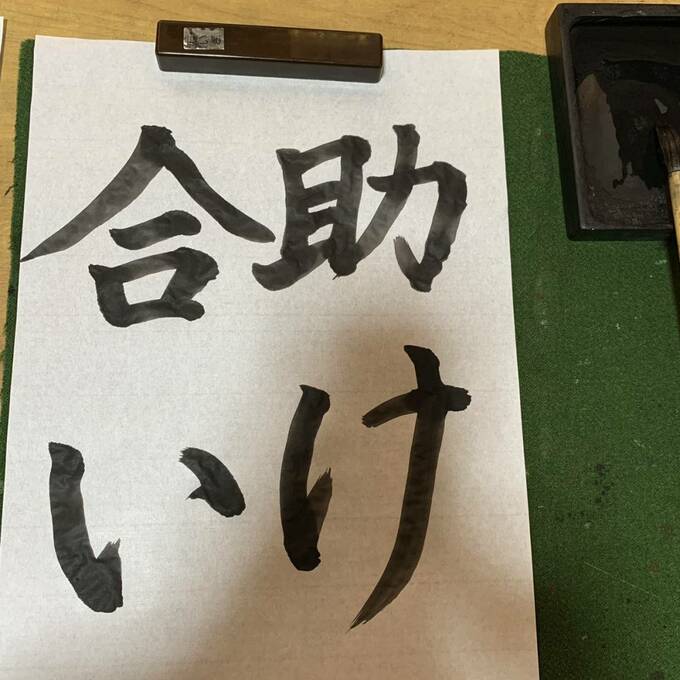 助け
合い